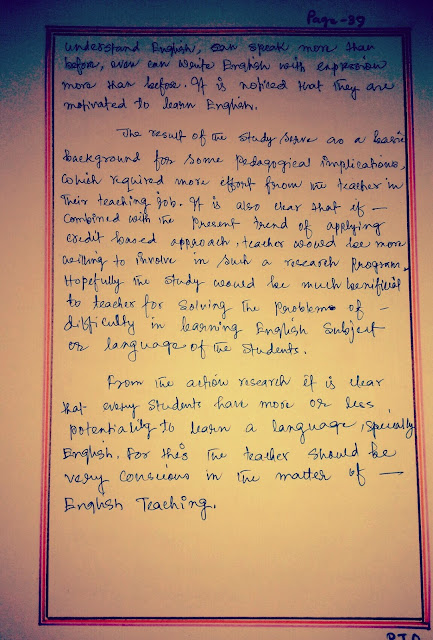 Page-39
understand English, can speak more than
before, even can write English with expression
more than before. It is noticed that they are
motivated to learn English.
The result of the study serve as a basic
background for some pedagogical implications,
which required more effort from the teacher in
their teaching job. It is also clear that if —
combined with the present trend of applying
credit based approach, teacher would be more
willing to involve in such a research program.
Hopefully the study would be much benificial
to teacher for solving the problems of —
difficulty in learning English subject
or language of the students.
From the action research it is clear
that every students have more or less
potentiality to learn a language, specially
English. For this the teacher should be
very conscious in the matter of —
English Teaching.
P.T.O